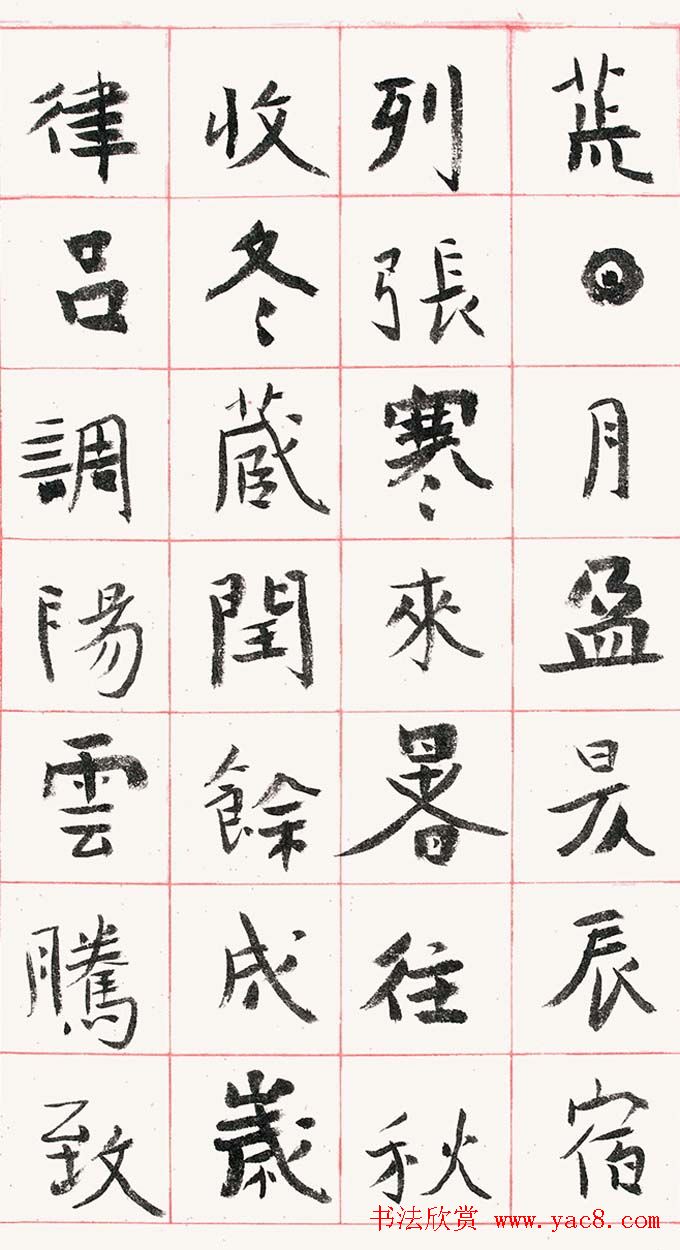 荒日月盈昃辰宿
列張寒來暑往秋
收冬藏閏餘成歲
律呂調陽雲騰致
书法欣赏 www.yac8.com